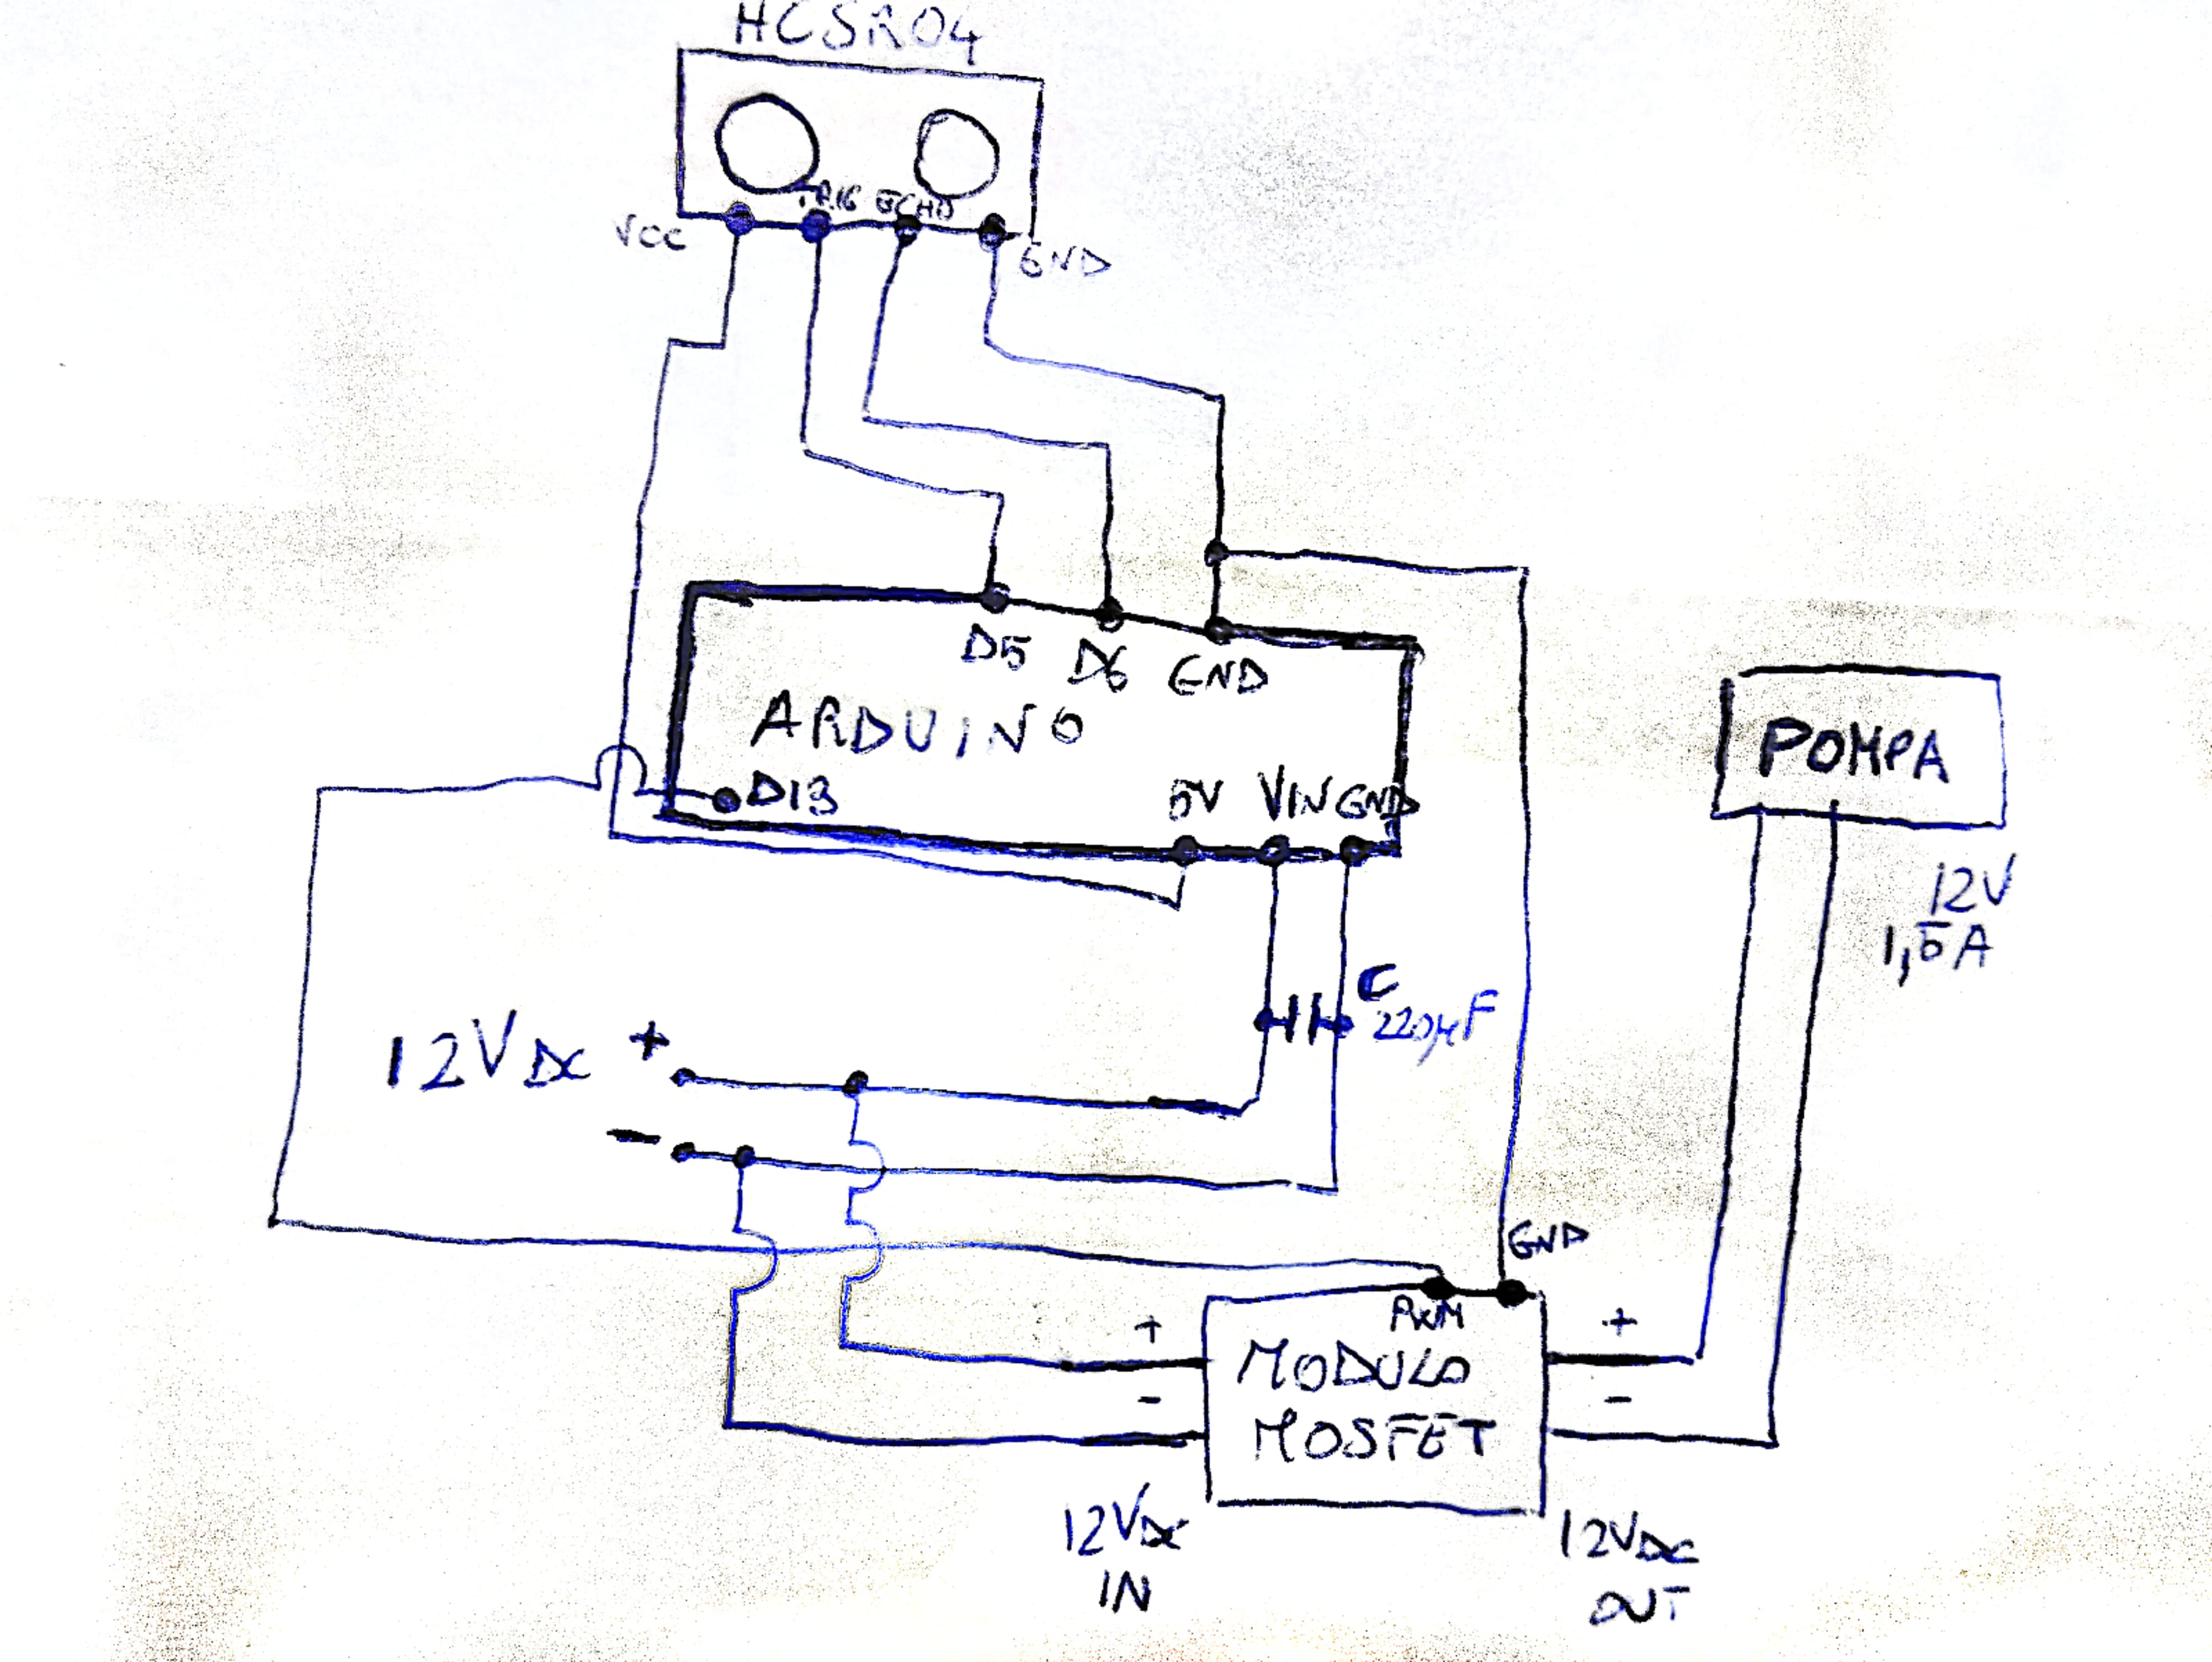 HCSR04
TRIG ECHO
VCC
GND
D5 D6 GND
ARDUINO
D13
5V VIN GND
POMPA
12V
1,5A
C
220µF
12VDC +
-
GND
PWM
+ +
MODULO
- -
MOSFET
12VDC
IN
12VDC
OUT